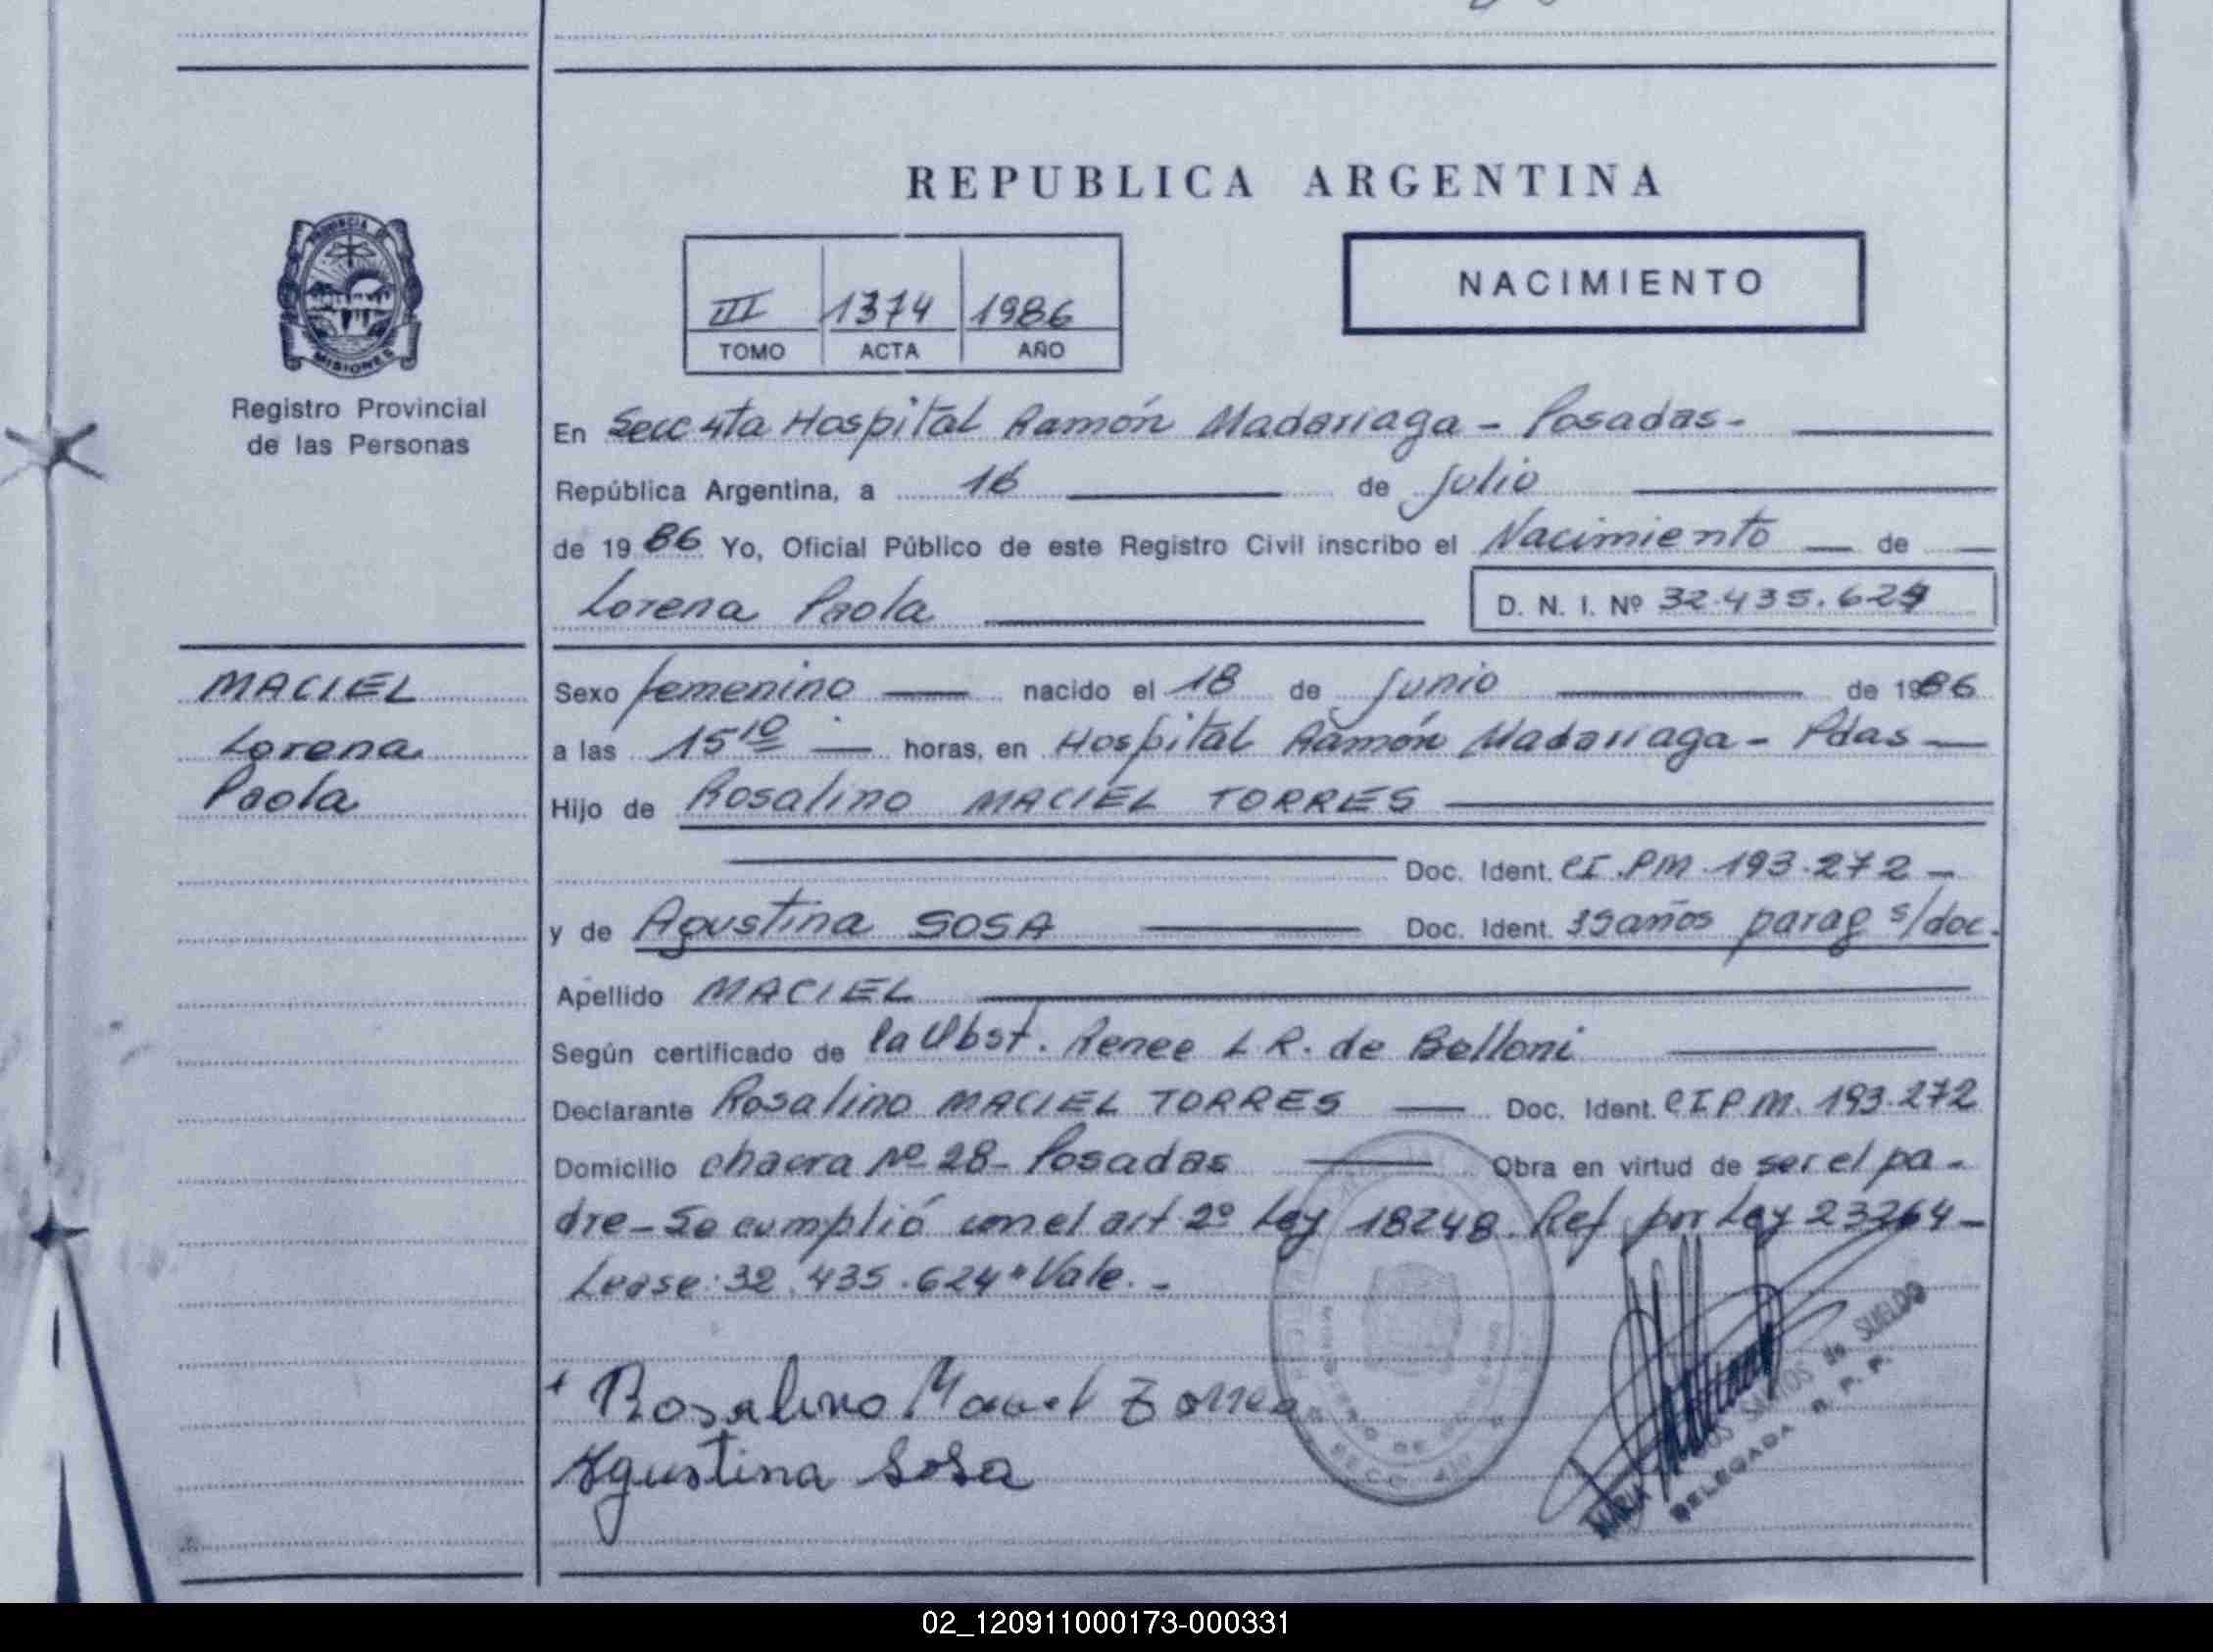 REPUBLICA ARGENTINA
PROVINCIA DE
MISIONES
Registro Provincial
de las Personas
III 1374 1986
TOMO ACTA AÑO
NACIMIENTO
En Secc 4ta Hospital Ramón Madariaga - Posadas -
República Argentina, a 16 de Julio
de 1986 Yo, Oficial Público de este Registro Civil inscribo el Nacimiento de
Lorena Paola D. N. I. Nº 32.435.624
MACIEL
Lorena
Paola
Sexo femenino nacido el 18 de Junio de 1986
a las 15 10 horas, en Hospital Ramón Madariaga - Pdas
Hijo de Rosalino MACIEL TORRES
Doc. Ident. CI.PM.193.272 -
y de Agustina SOSA Doc. Ident. 39 años parag s/doc.
Apellido MACIEL
Según certificado de la Obst. Renee L R. de Belloni
Declarante Rosalino MACIEL TORRES Doc. Ident. CIPM. 193.272
Domicilio chacra Nº 28 - Posadas Obra en virtud de ser el pa-
dre - Se cumplió con el art 2º Ley 18248. Ref por Ley 23264 -
Lease: 32.435.624" Vale. -
Rosalino Maciel Torres
Agustina Sosa
MARIA SANTOS de SUELDO
DELEGADA R. P. P.
02_120911000173-000331